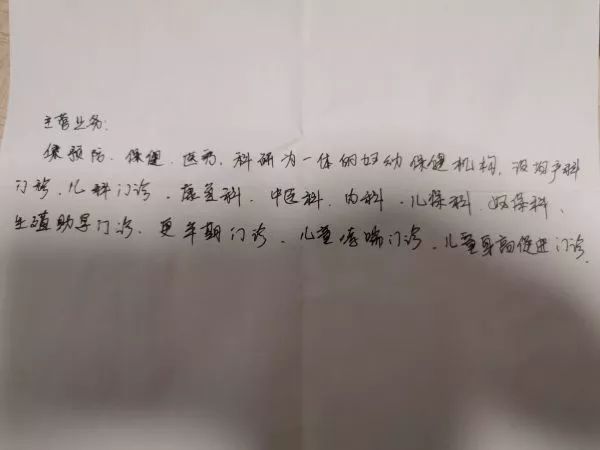 主营业务:
保预防、保健、医疗、科研为一体的妇幼保健机构,设有产科
门诊、儿科门诊、康复科、中医科、内科、儿保科、妇保科、
生殖助孕门诊、更年期门诊、儿童哮喘门诊、儿童身高促进门诊.